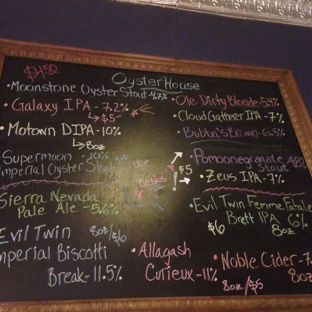 Oyster House
• Moonstone Oyster Stout - 4.7%
• Galaxy IPA - 7.2%
↳ $5
• Motown DIPA - 10%
↳ 8oz
• Supermoon - 10%
Imperial Oyster Stout
Sierra Nevada
Pale Ale - 5.6%
Evil Twin 8oz/$6
Imperial Biscotti
Break - 11.5%
• Ole Dirty Blonde - 5.4%
• Cloud Gatherer IPA - 7%
Brown
Stout
$5
• Zeus IPA - 7%
• Evil Twin Femme Fatale
Brett IPA 6%
$6 8oz
• Allagash
Curieux - 11%
8oz/$5
• Noble Cider - 7.
8oz